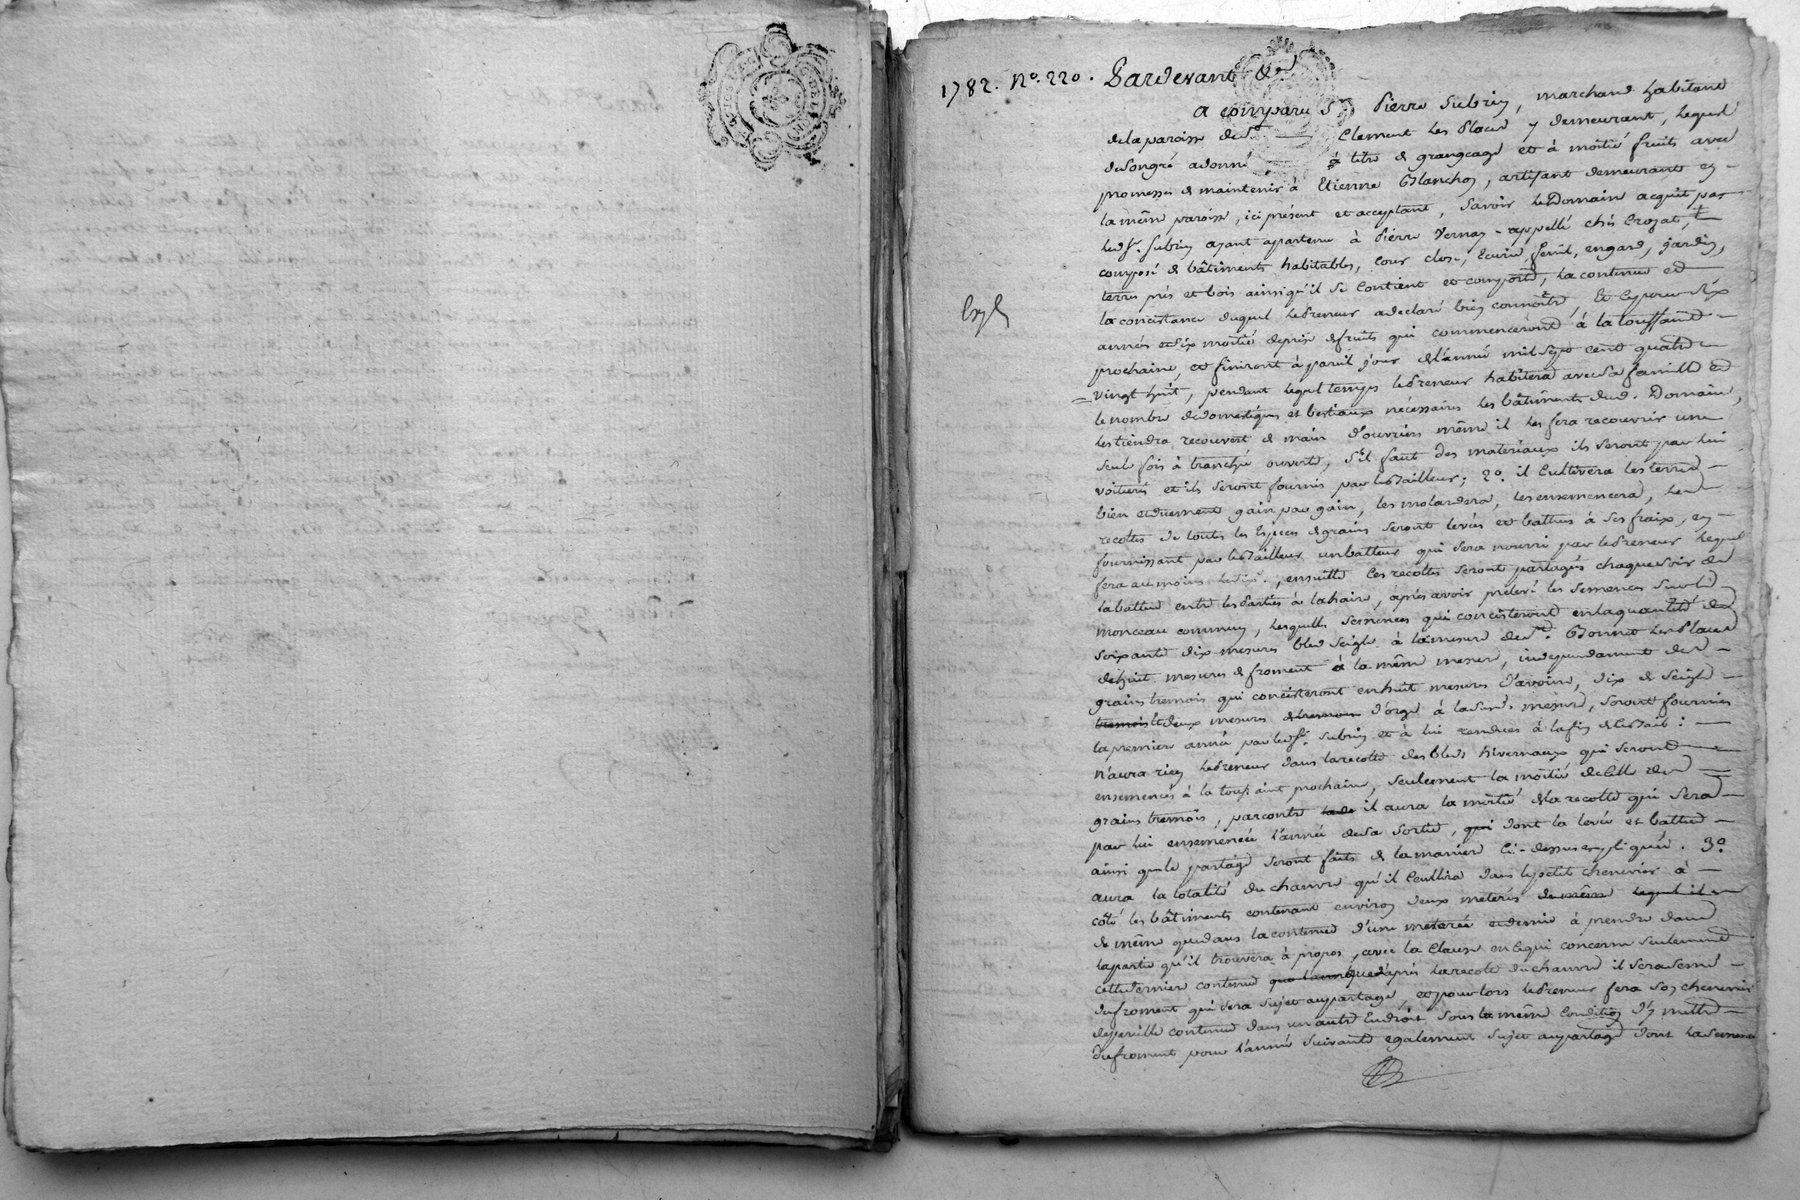 1782. N.º 220. Pardevant &.ª
a comparu Sʳ Pierre Subrin, marchand habitant
de la paroisse de Sᵗ Clement les Places y demeurant, lequel
de son gré a donné à titre de grangeage et à moitié fruits avec
promesse de maintenir à Etienne Blanchon, artisant demeurant en
la même paroisse, ici présent et acceptant, Savoir le Domaine acquit par
led. Sʳ. Subrin ayant apartenu à Pierre Vernay appellé chés Crozat,
composé de bâtiments habitables, cour close, Ecurie, fenil, engard, jardin,
terres prés et bois ainsi qu'il se Contient et comporte, la contenue et
la concistance duquel le Preneur a declaré bien connoitre, Et ce pour Six
Exp.é
années et Six moitié deprise de fruits qui commenceront à la toussaint
prochaine, et finiront à pareil jour de l'année mil sept cent quatre
vingt huit, pendant lequel temps le Preneur habitera avec sa famille et
le nombre de domestiques et bestiaux nécessaires les bâtiments dud. Domaine,
les tiendra recouvert de main d'ouvriers même il les fera recouvrir une
seule fois à tranché ouverte, S'il faut des matériaux ils seront par lui
voiturés et ils seront fournis par le Bailleur; 2º. il Cultivera les terres
bien et duement gain par gain, les molardera, les ensemencera, les
recoltes de toutes les Espèces de grains seront levées et battues à ses fraix, en
fournissant par le Bailleur un batteur qui sera nourri par le Preneur lequel
fera au moins, ensuitte les recoltes seront partagés chaque soir de
la battue entre les Parties à la haire, après avoir préleré les Semences sur le
monceau commun, lesquelles semences qui concisteront en la quantité de
soixante dix mesures bled Seigle à la mesure de Sᵗ. Bonnet les Places
de huit mesures de froment à la même mesure, independament des
grains tremois qui concisteront en huit mesures d'avoine, dix de Seigle
tremois et deux mesures de tremois d'orge à la susd. mesure, seront fournies
la premiere année par led. Sʳ. Subrin et à lui rendues à la fin de la Bail:
n'aura rien le Preneur dans la recolte des bleds hivernaux qui seront
ensemencés à la toussaint prochaine, seulement la moitié de Celle des
grains tremois, par contre il aura la moitié de la recolte qui sera
par lui ensemencée l'année de sa Sortie, qui dont la levée et battue
ainsi que le partage seront faits de la maniere Ci-dessus expliquée. 3º.
aura la totalité du chanvre qu'il Ceuillira dans le petit chenevier à
côté les bâtiments contenant environ deux meterés de même lequel il
de même que dans la contenue d'une meterée et demie à prendre dans
la partie qu'il trouvera à propos, avec la Clause en Ce qui concerne seulement
cette derniere contenue que l'année qu'après la recolte du chanvre il sera semé
du froment qui sera sujet au partage, et pour lors le Preneur fera son chenevier
de pareille contenue dans un autre Endroit sous la même Condition d'y mettre
du froment pour l'année suivante egalement Sujet au partage dont la Semence